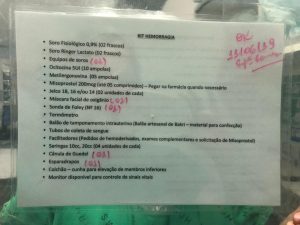 KIT HEMORRAGIA
• Soro Fisiológico 0,9% (02 frascos)
• Soro Ringer Lactato (02 frascos)
• Equipos de soros (02)
• Ocitocina 5UI (10 ampolas)
• Metilergonovina (05 ampolas)
• Misoprostol 200mcg (até 05 comprimidos) – Pegar na farmácia quando necessário
• Jelco 18, 16 e/ou 14 (02 unidades de cada)
• Máscara facial de oxigênio (01)
• Sonda de Foley (Nº 16)
• Termômetro
• Balão de tamponamento intrauterino (Balão artesanal de Bakri – material para confecção)
• Tubos de coleta de sangue
• Facilitadores (Pedidos de hemoderivados, exames complementares e solicitação do Misoprostol)
• Seringas 10cc, 20cc (04 unidades de cada)
• Cânula de Guedel (01)
• Esparadrapos (01)
• Colchão – cunha para elevação de membros inferiores
• Monitor disponível para controle de sinais vitais
OK